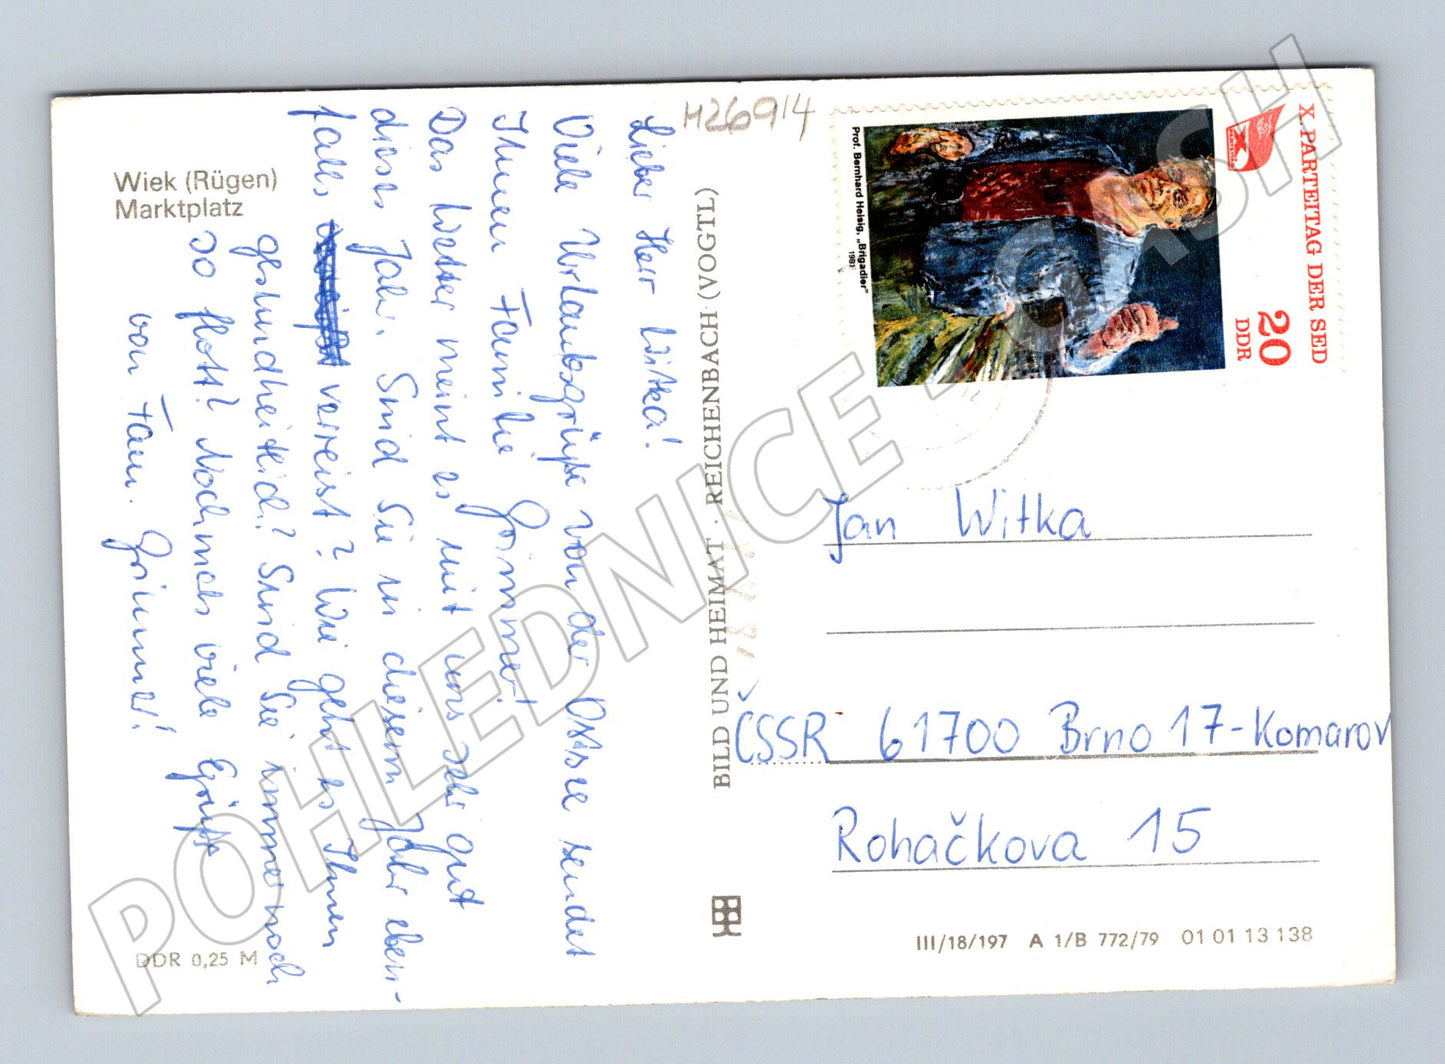 Wiek (Rügen)
Marktplatz
H26914
Lieber Herr Witka!
Viele Urlaubsgrüße von der Ostsee sendet
Ihnen Familie Grimmer!
Das Wetter meint es mit uns sehr gut
dieses Jahr. Sind Sie in diesem Jahr eben-
falls verreist? Wie geht es Ihnen
gesundheitlich? Sind Sie immer noch
so flott? Nochmals viele Grüße
von Fam. Grimmer!
DDR 0,25 M
BILD UND HEIMAT · REICHENBACH (VOGTL)
X. PARTEITAG DER SED
20
DDR
Prof. Bernhard Heisig, „Brigadier"
1981
Jan Witka
ČSSR 61700 Brno 17-Komarov
Rohačkova 15
III/18/197 A 1/B 772/79 01 01 13 138
POHLEDNICE - CASH